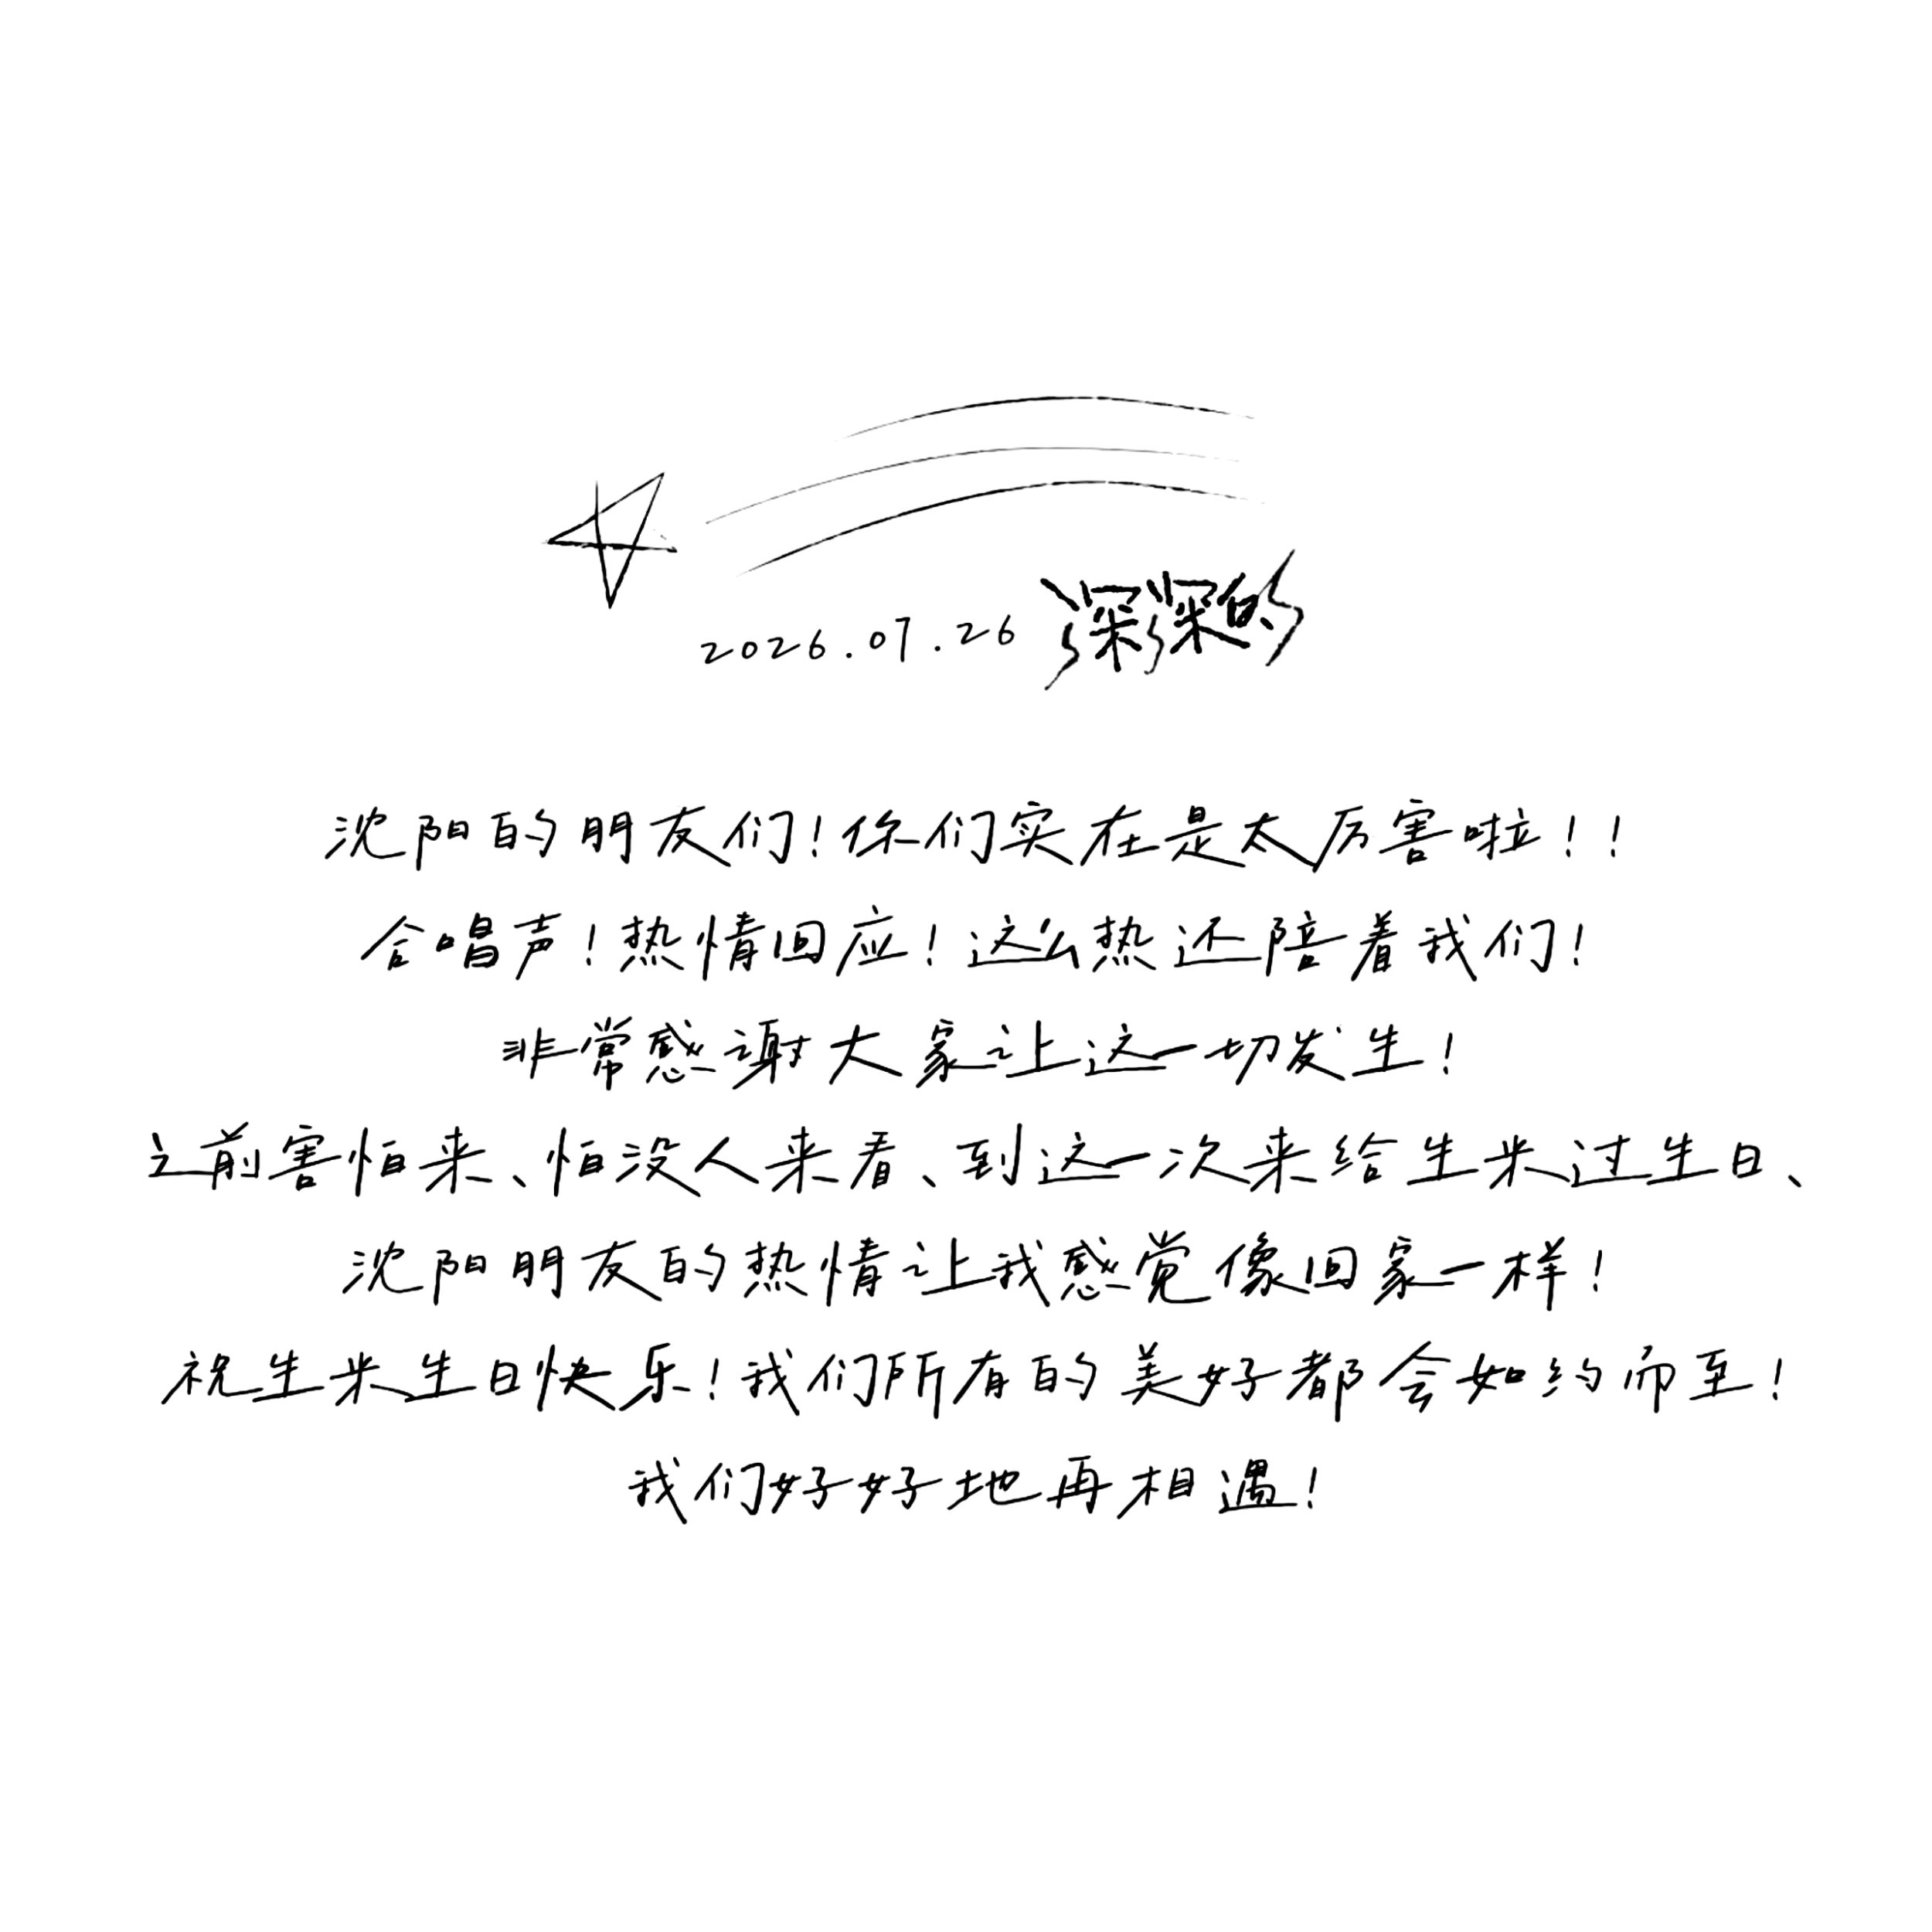 2026.07.26 深深的
沈阳的朋友们!你们实在是太厉害啦!!
合唱声!热情回应!这么热还陪着我们!
非常感谢大家让这一切发生!
之前害怕来、怕没人来看、到这一次来给生米过生日、
沈阳朋友的热情让我感觉像回家一样!
祝生米生日快乐!我们所有的美好都会如约而至!
我们好好地再相遇!